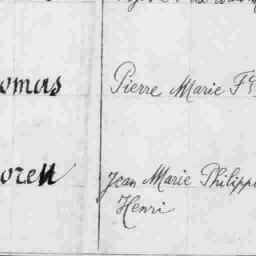 omas Pierre Marie Fçs
oren Jean Marie Philippe
Henri